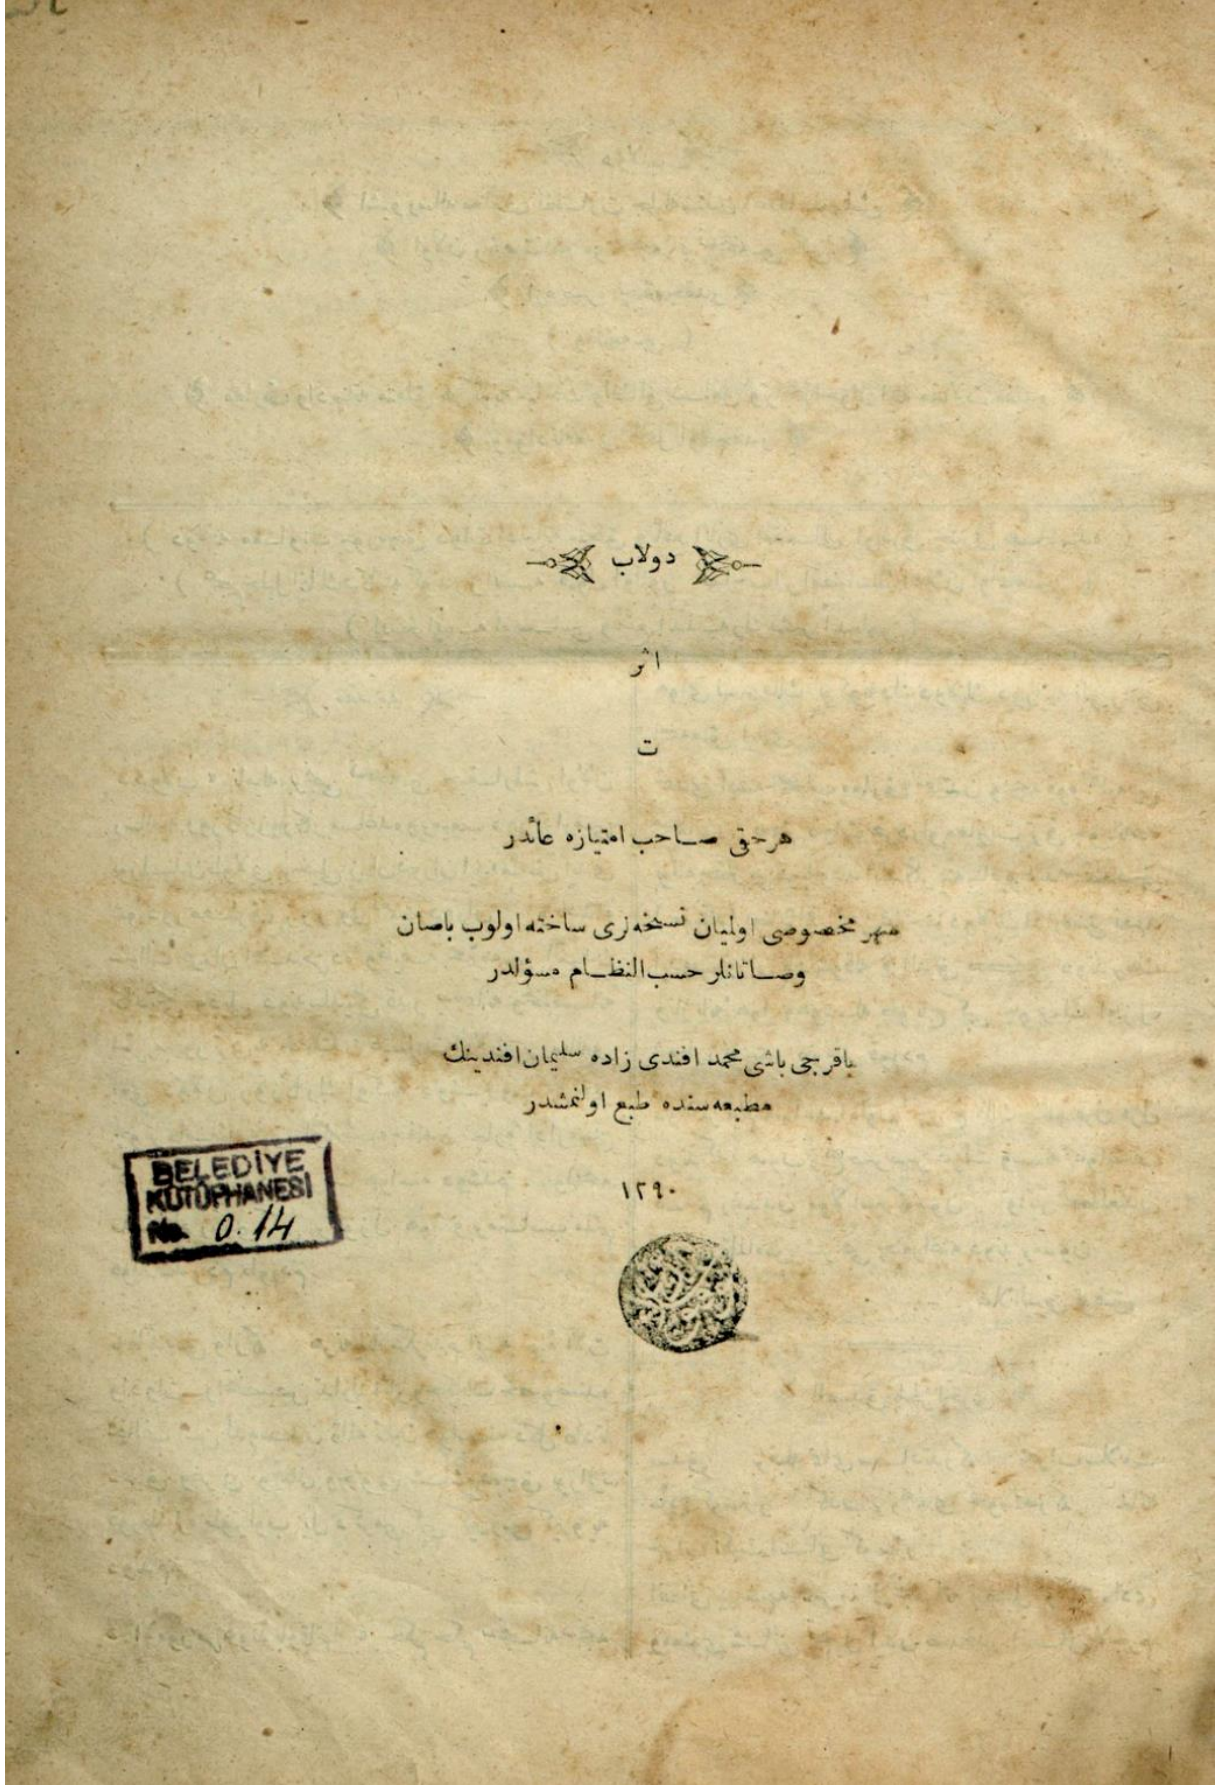 دولاب
اثر
ت
هر حق صاحب امتيازه عائدر
مهر مخصوصى اولميان نسخه لرى ساخته اولوب باصان
وصاتانلر حسب النظام مسؤلدر
باقرجى باشى محمد افندى زاده سليمان افندينك
مطبعه سنده طبع اولنمشدر
١٢٩٠
BELEDİYE
KÜTÜPHANESİ
No. 0.14